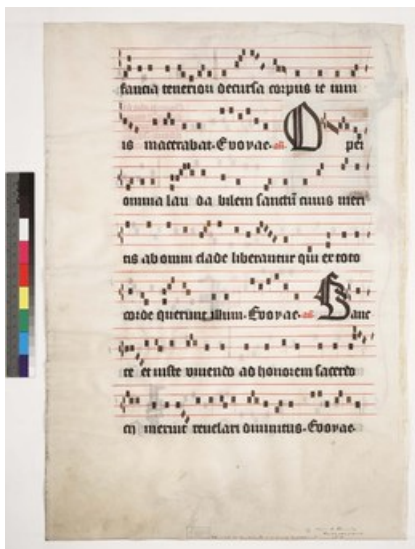 fancia teneriori decursa corpus ie iuni
is macerabat. Evovae. an. O per
omnia lau da bilem sanctū cuius meri
tis ab omni clade liberantur qui ex toto
corde querunt illum. Evovae. an. Sane
te et iuste vivendo ad honorem sacerdo
cii meruit revelari divinitus. Evovae.